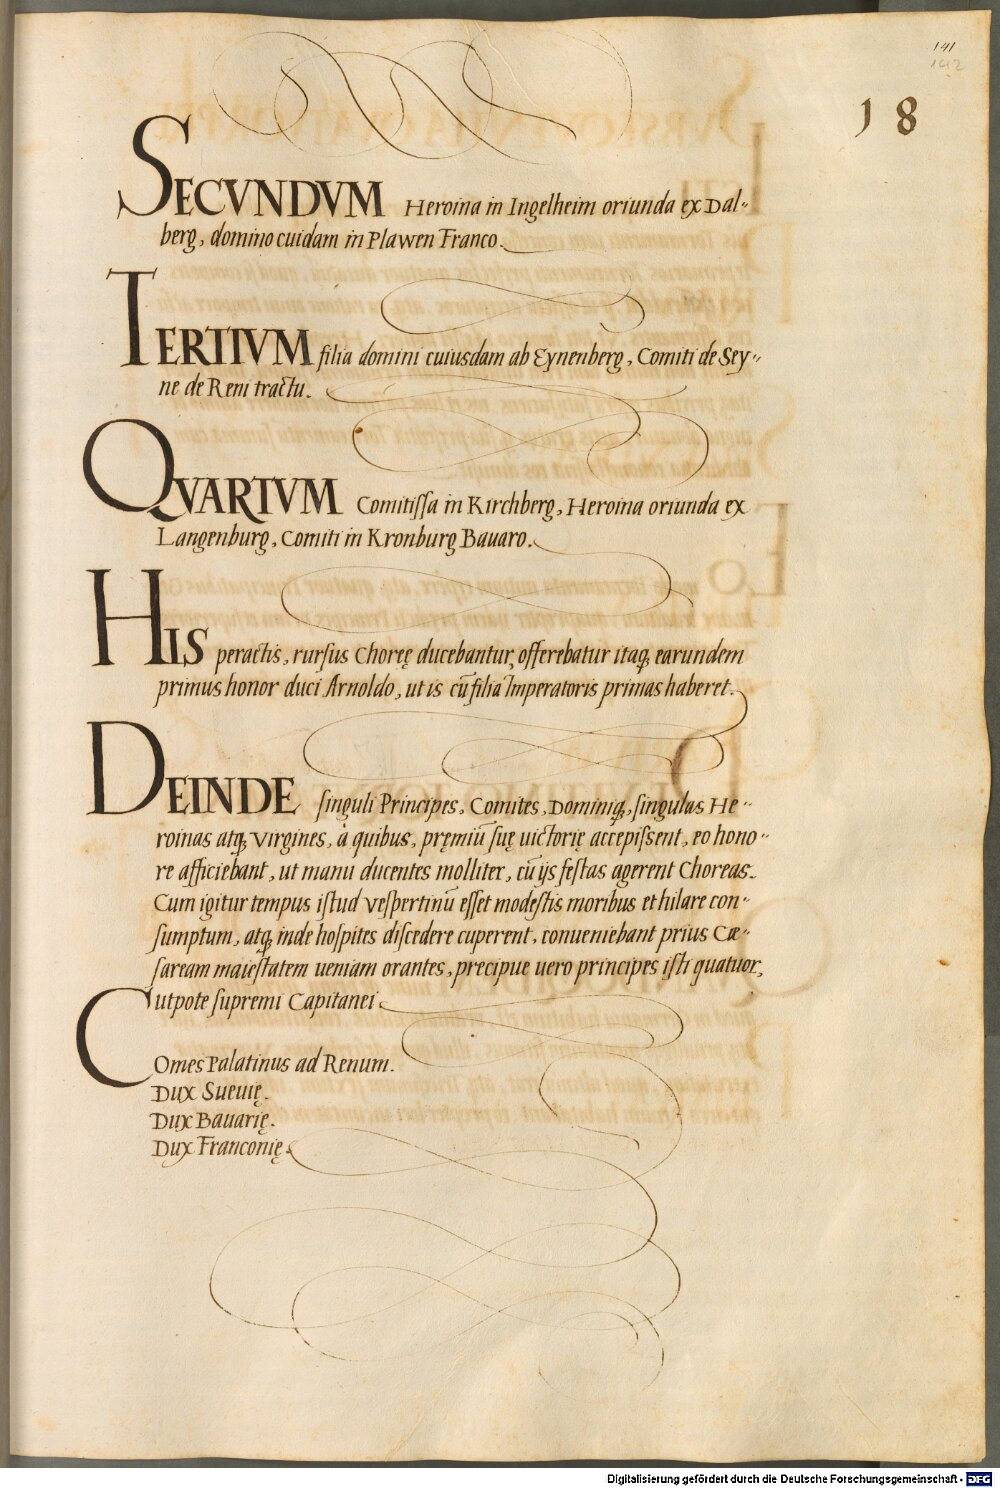 141
142
18
SECVNDVM Heroina in Ingelheim oriunda ex Dal-
berg, domino cuidam in Plawen Franco.
TERTIVM filia domini cuiusdam ab Eynenberg, Comiti de Sey-
ne de Reni tractu.
QVARTVM Comitiſſa in Kirchberg, Heroina oriunda ex
Langenburg, Comiti in Kronburg Bauaro.
HIS peractis, rurſus Choreę ducebantur, offerebatur itaq; earundem
primus honor duci Arnoldo, ut is cū filia Imperatoris primas haberet.
DEINDE ſinguli Principes, Comites, Dominiq;, ſingulas He-
roinas atq; Virgines, à quibus, pręmiū ſuę uictorię accepiſſent, eo hono-
re afficiebant, ut manu ducentes molliter, cū ijs feſtas agerent Choreas.
Cum igitur tempus iſtud veſpertinū eſſet modeſtis moribus et hilare con-
ſumptum, atq; inde hoſpites diſcedere cuperent, conueniebant prius Cæ-
ſaream maieſtatem ueniam orantes, precipue uero principes iſti quatuor,
utpote ſupremi Capitanei
COmes Palatinus ad Renum.
Dux Sueuię.
Dux Bauarię.
Dux Franconię.
Digitalisierung gefördert durch die Deutsche Forschungsgemeinschaft - DFG